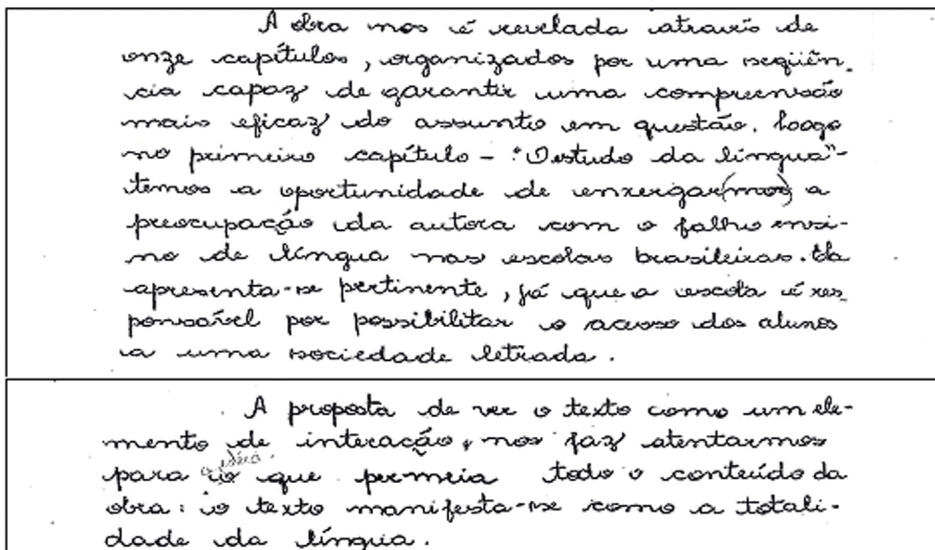 A obra nos é revelada através de
onze capítulos, organizados por uma seqüên-
cia capaz de garantir uma compreensão
mais eficaz do assunto em questão. Logo
no primeiro capítulo - "O estudo da língua" -
temos a oportunidade de enxergar(mos) a
preocupação da autora com o falho ensi-
no de língua nas escolas brasileiras. Ela
apresenta-se pertinente, já que a escola é res-
ponsável por possibilitar o acesso dos alunos
a uma sociedade letrada.
A proposta de ver o texto como um ele-
mento de interação, nos faz atentarmos
para o que permeia todo o conteúdo da
obra: o texto manifesta-se como a totali-
dade da língua.